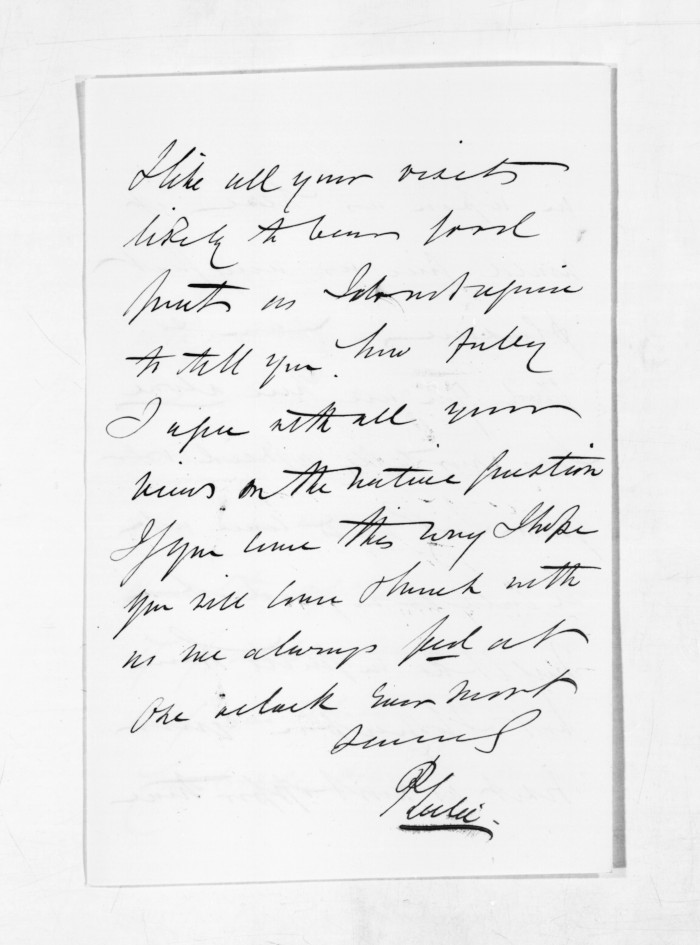 I like all your visits
likely to bear good
fruits as I do not require
to tell you how fully
I agree with all your
views on the native question
If you come this way I hope
you will come & lunch with
us we always feed at
One o'clock Ever most
sincerely